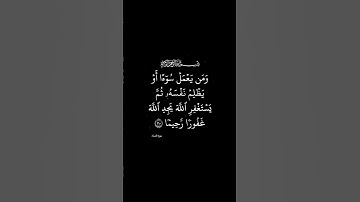 وَمَن يَعْمَلْ سُوٓءًا أَوْ
يَظْلِمْ نَفْسَهُۥ ثُمَّ
يَسْتَغْفِرِ ٱللَّهَ يَجِدِ ٱللَّهَ
غَفُورًا رَّحِيمًا